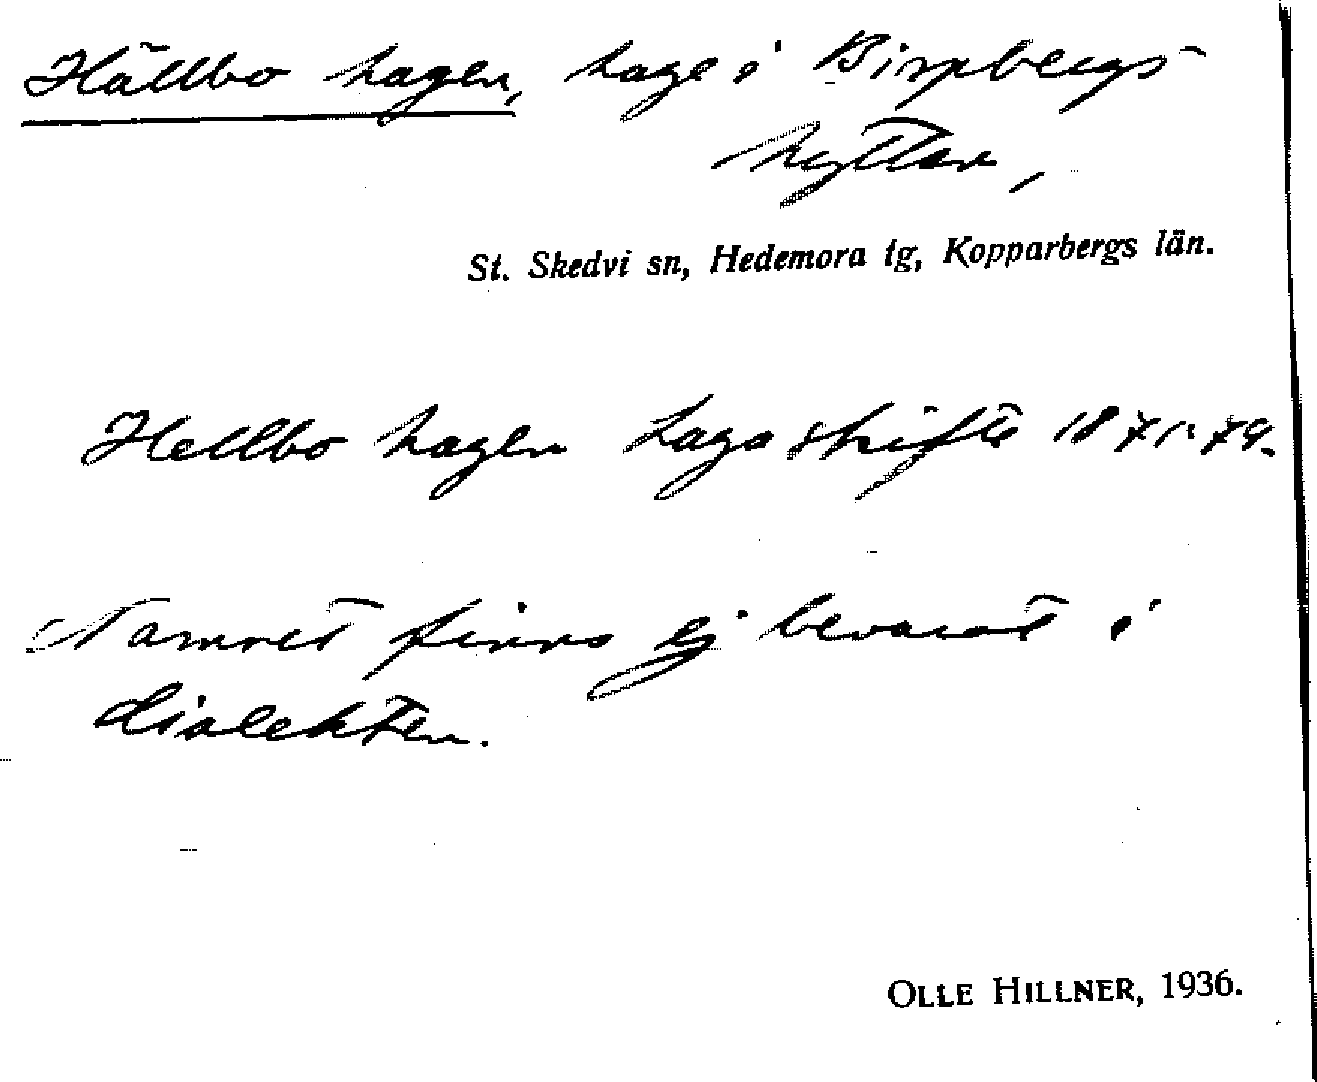 Hällbo hagen, hage i Bispbergs
hyttan,
St. Skedvi sn, Hedemora tg, Kopparbergs län.
Hellbo hagen Laga skifte 1871-79.
Namnet finns ej bevarat i
dialekten.
OLLE HILLNER, 1936.